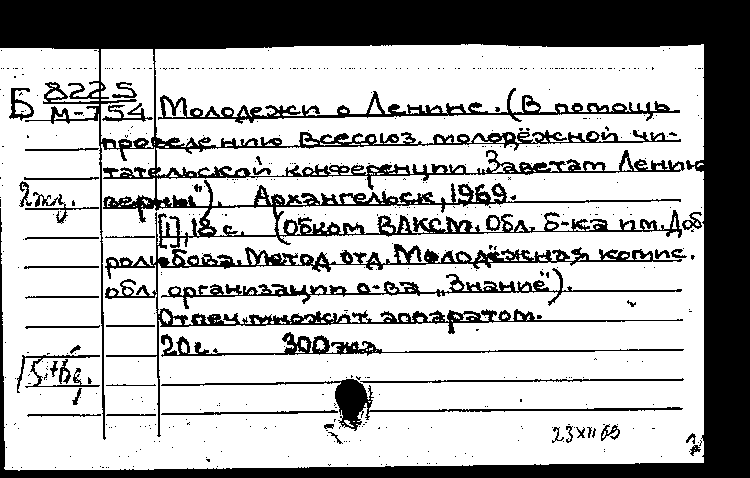 Б 8225
М-754 Молодежи о Ленине. (В помощь
проведению Всесоюз. молодёжной чи-
тательской конференции „Заветам Ленина
2 экз. верны"). Архангельск, 1969.
[1], 18 с. (Обком ВЛКСМ. Обл. б-ка им. Доб-
ролюбова. Метод. отд. Молодёжная комис.
обл. организации о-ва „Знание").
Отпеч. множит. аппаратом.
20 с. 300 экз.
23 XII 69